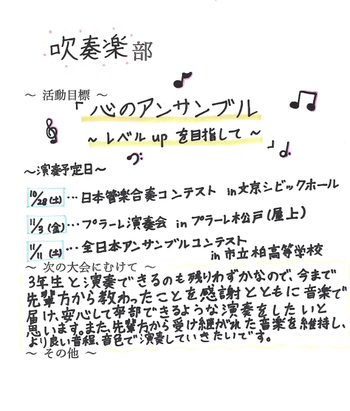 吹奏楽部
～ 活動目標 ～
「心のアンサンブル
～レベル up を目指して～」
～演奏予定日～
10/28(土)…日本管楽合奏コンテスト in 文京シビックホール
11/3(金)…プラーレ演奏会 in プラーレ松戸(屋上)
11/11(土)…全日本アンサンブルコンテスト
in 市立柏高等学校
～ 次の大会にむけて ～
3年生と演奏できるのも残りわずかなので、今まで
先輩方から教わったことを感謝とともに音楽で
届け、安心して卒部できるような演奏をしたいと
思います。また、先輩方から受け継がれた音楽を維持し、
より良い音程、音色で演奏していきたいです。
～ その他 ～